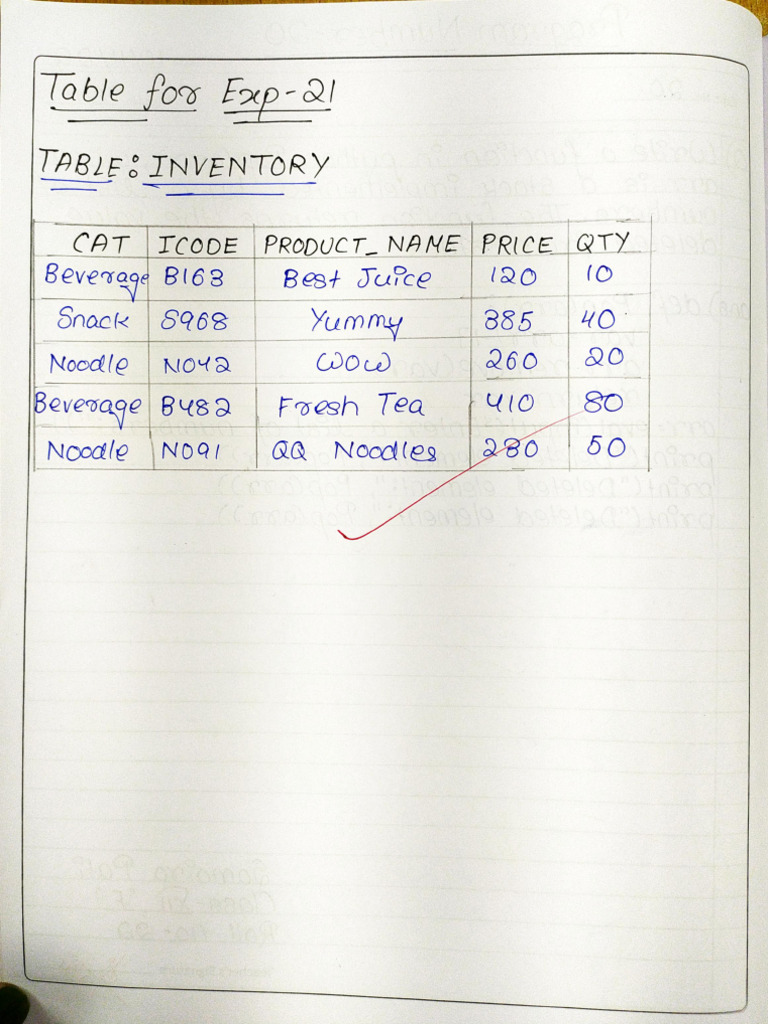 Table for Exp-21
TABLE: INVENTORY
CAT ICODE PRODUCT_NAME PRICE QTY
Beverage B163 Best Juice 120 10
Snack S968 Yummy 385 40
Noodle N042 WOW 260 20
Beverage B482 Fresh Tea 410 80
Noodle N091 QQ Noodles 280 50